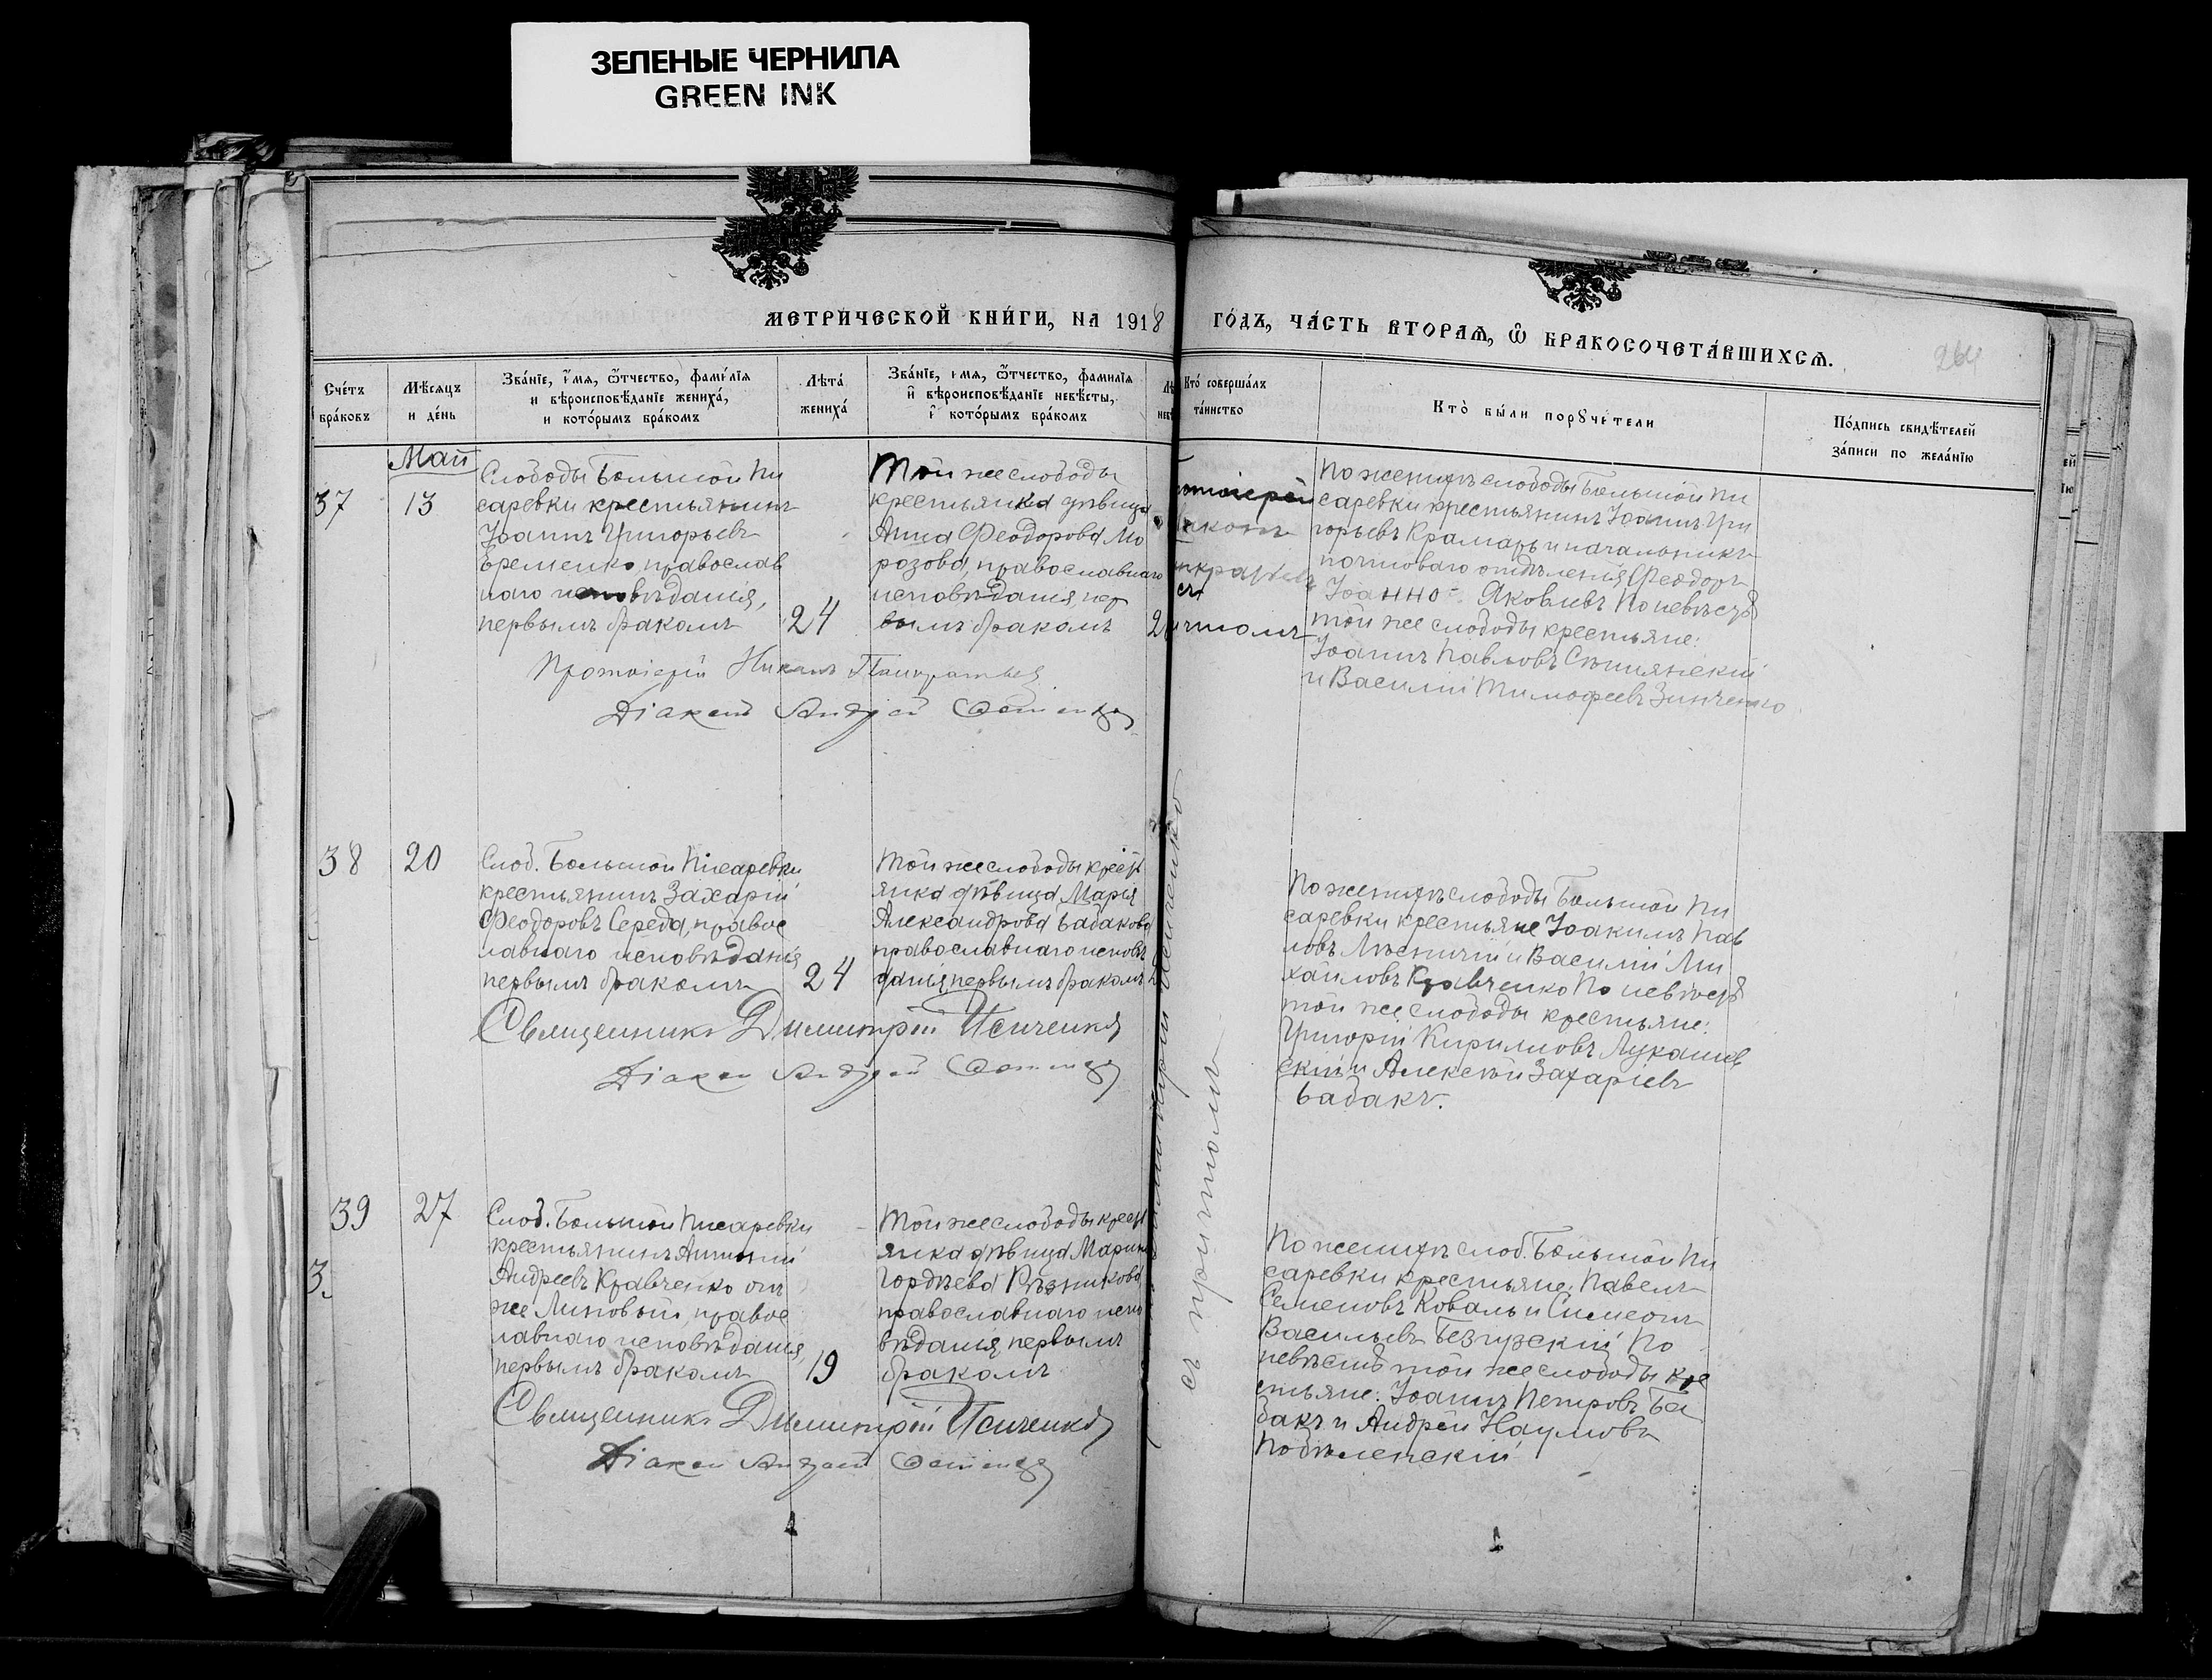 ЗЕЛЕНЫЕ ЧЕРНИЛА
GREEN INK
МЕТРИ́ЧЕСКОЙ КНИ́ГИ, НА 1918
ГО́ДЪ, ЧА́СТЬ ВТОРАѦ, Ѿ БРАКОСОЧЕТА́ВШИХСѦ.
264
Сче́тъ
бра́ковъ
Мѣ́сяцъ
и де́нь
Зва́нїе, и҆́мя, ѻ҆́тчество, фами́лїя
и вѣроисповѣ́данїе жениха́,
и кото́рымъ бра́комъ
Лѣта́
жениха́
Зва́нїе, и́мя, ѻ҆́тчество, фамилїя
и҆ вѣроисповѣ́данїе невѣ́сты,
и҆ кото́рымъ бра́комъ
Кто̀ соверша́лъ
та́инство
Кто̀ бы́ли порꙋчи́тели
По́дпись свидѣ́телей
за́писи по жела́нїю
Май
37
13
Слободы Большой Пи
саревки крестьянинъ
Іоаннъ Григорьевъ
Еременко, православ
наго исповѣданія,
первымъ бракомъ
24
Той же слободы
крестьянка дѣвица
Анна Ѳеодорова Мо
розова, православнаго
исповѣданія, пер
вымъ бракомъ
2
съ
По женихѣ слободы Большой Пи
саревки крестьянинъ Іоаннъ Гри
горьевъ Крамарь и начальникъ
почтоваго отдѣленія Ѳеодоръ
Іоанно- Яковлевъ По невѣстѣ
той же слободы крестьяне:
Іоаннъ Павловъ
и Василій Тимоѳеевъ Зинченко
Протоіерей
Діаконъ Андрей
38
20
Слоб. Большой Писаревки
крестьянинъ Захарій
Ѳеодоровъ Середа, правос
лавнаго исповѣданія
первымъ бракомъ
24
Той же слободы крест
янка дѣвица Марія
Александрова Бабакова
православнаго исповѣ
данія, первымъ бракомъ
По женихѣ слободы Большой Пи
саревки крестьяне Іоакимъ Пав
ловъ Лѣсничій и Василій Ми
хайловъ Кравченко По невѣстѣ
той же слободы крестьяне:
Григорій Кирилловъ Лукашев
скій и Алексѣй Захаріевъ
Бабакъ.
Священникъ Димитрій Исиченко
Діакон Андрей
съ причтомъ
39
27
3
Слоб. Большой Писаревки
крестьянинъ Антоній
Андреевъ Кравченко онъ
же Липовый, правос
лавнаго исповѣданія,
первымъ бракомъ
19
Той же слободы крест
янка дѣвица Марина
Гордѣева Рѣзникова
православнаго испо
вѣданія, первымъ
бракомъ
По женихѣ слоб. Большой Пи
саревки крестьяне: Павелъ
Семеновъ Коваль и Симеонъ
Васильевъ По
невѣстѣ той же слободы кре
стьяне: Іоаннъ Петровъ Ба
бакъ и Андрей Наумовъ
Священникъ Димитрій Исиченко
Діакон Андрей